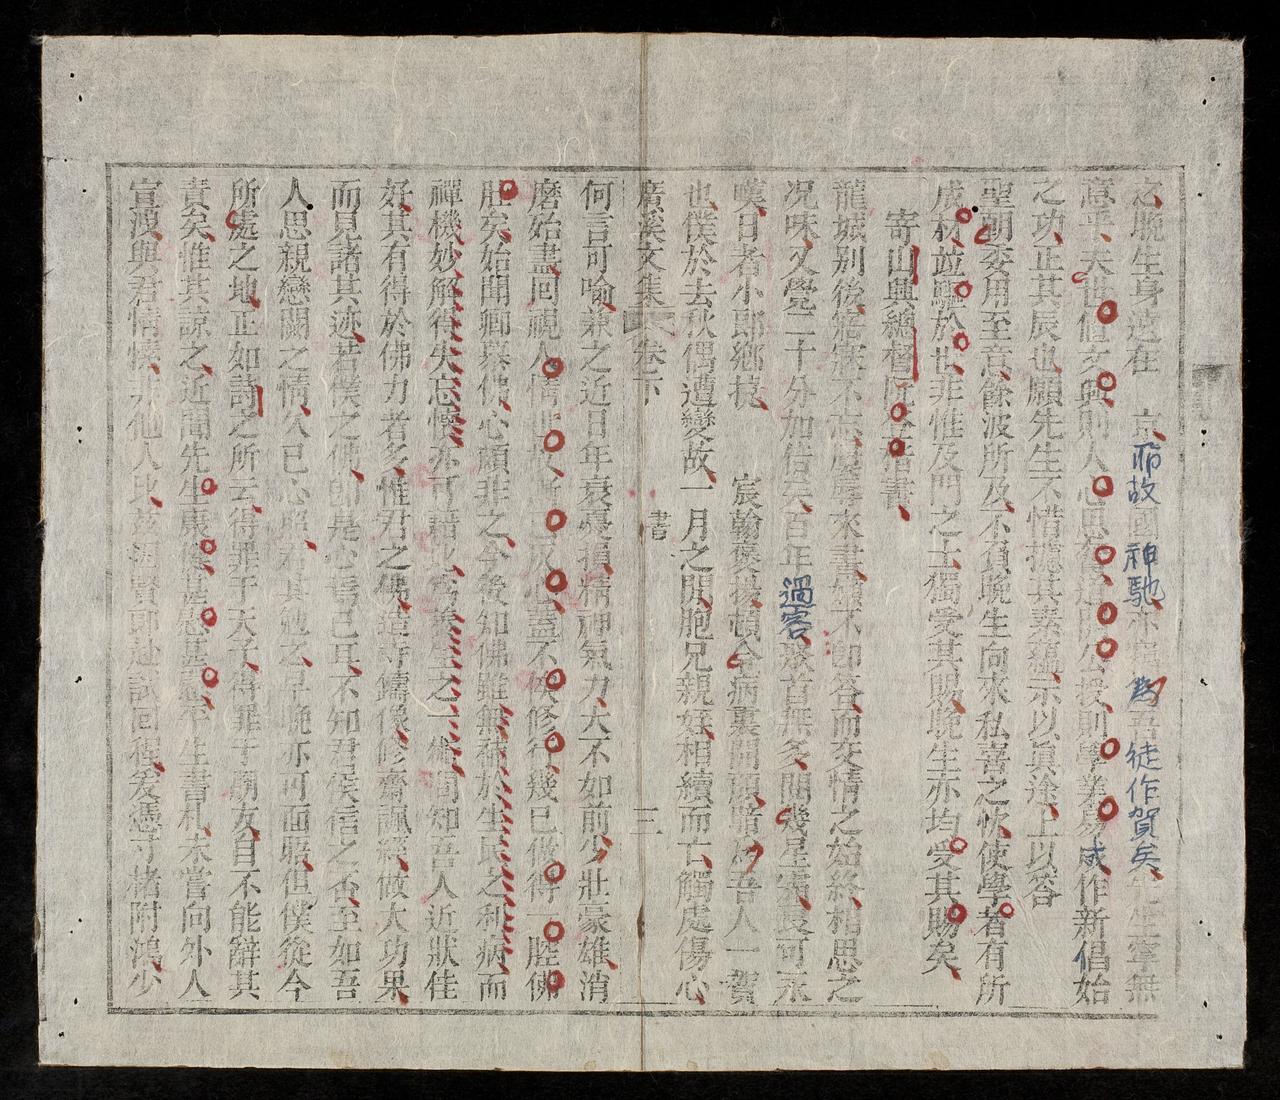 之晚生身遠在 京而故國神馳亦爲吾徒作賀矣先生寧無
意乎夫世値文興則人心思奮道以公授則學業易成作新倡始
之功正其辰也願先生不惜聽其素蘊示以真途上以答
聖朝委用至意餘波所及不負晚生向來私喜之忱使學者有所
成材並驅於世非惟及門之士獨受其賜晚生亦均受其賜矣
寄山興總督阮登楷書
龍城別後寤寐不忘來書不即答而交情之始終相思之
况味又覺二十分加倍矣百年過客皓首無多開幾星霜良可永
嘆日者小郎鄉捷
宸翰褒揚頓令病裏開顏暗爲吾人一賀
也僕於去秋偶遭變故一月之間胞兄親姪相續而亡觸處傷心
廣溪文集 卷下 書 三
何言可喻兼之近日年衰憂損精神氣力大不如前少壯豪雄消
磨始盡回視人情世故反心蓋不俟修行幾已做得一腔佛
肚矣始聞卿慕佛心頗非之今後知佛雖無補於生民之利病而
禪機妙解得失忘懷亦可藉以養生之一術固知吾人近狀佳
好其有得於佛力者多惟君之佛造寺鑄像修齋諷經做大功果
而見諸其迹若僕之佛即是心焉已耳不知君侯信之否至如吾
人思親戀闕之情久已心照若其他之早晚亦可面晤但僕從今
所處之地正如詩之所云得罪于天子得罪于朋友自不能辭其
責矣惟其諒之近聞先生衰甚平生書札未嘗向外人
宣洩與君情懷非他人比玆賢郎赴試回程爰憑寸楮附鴻少